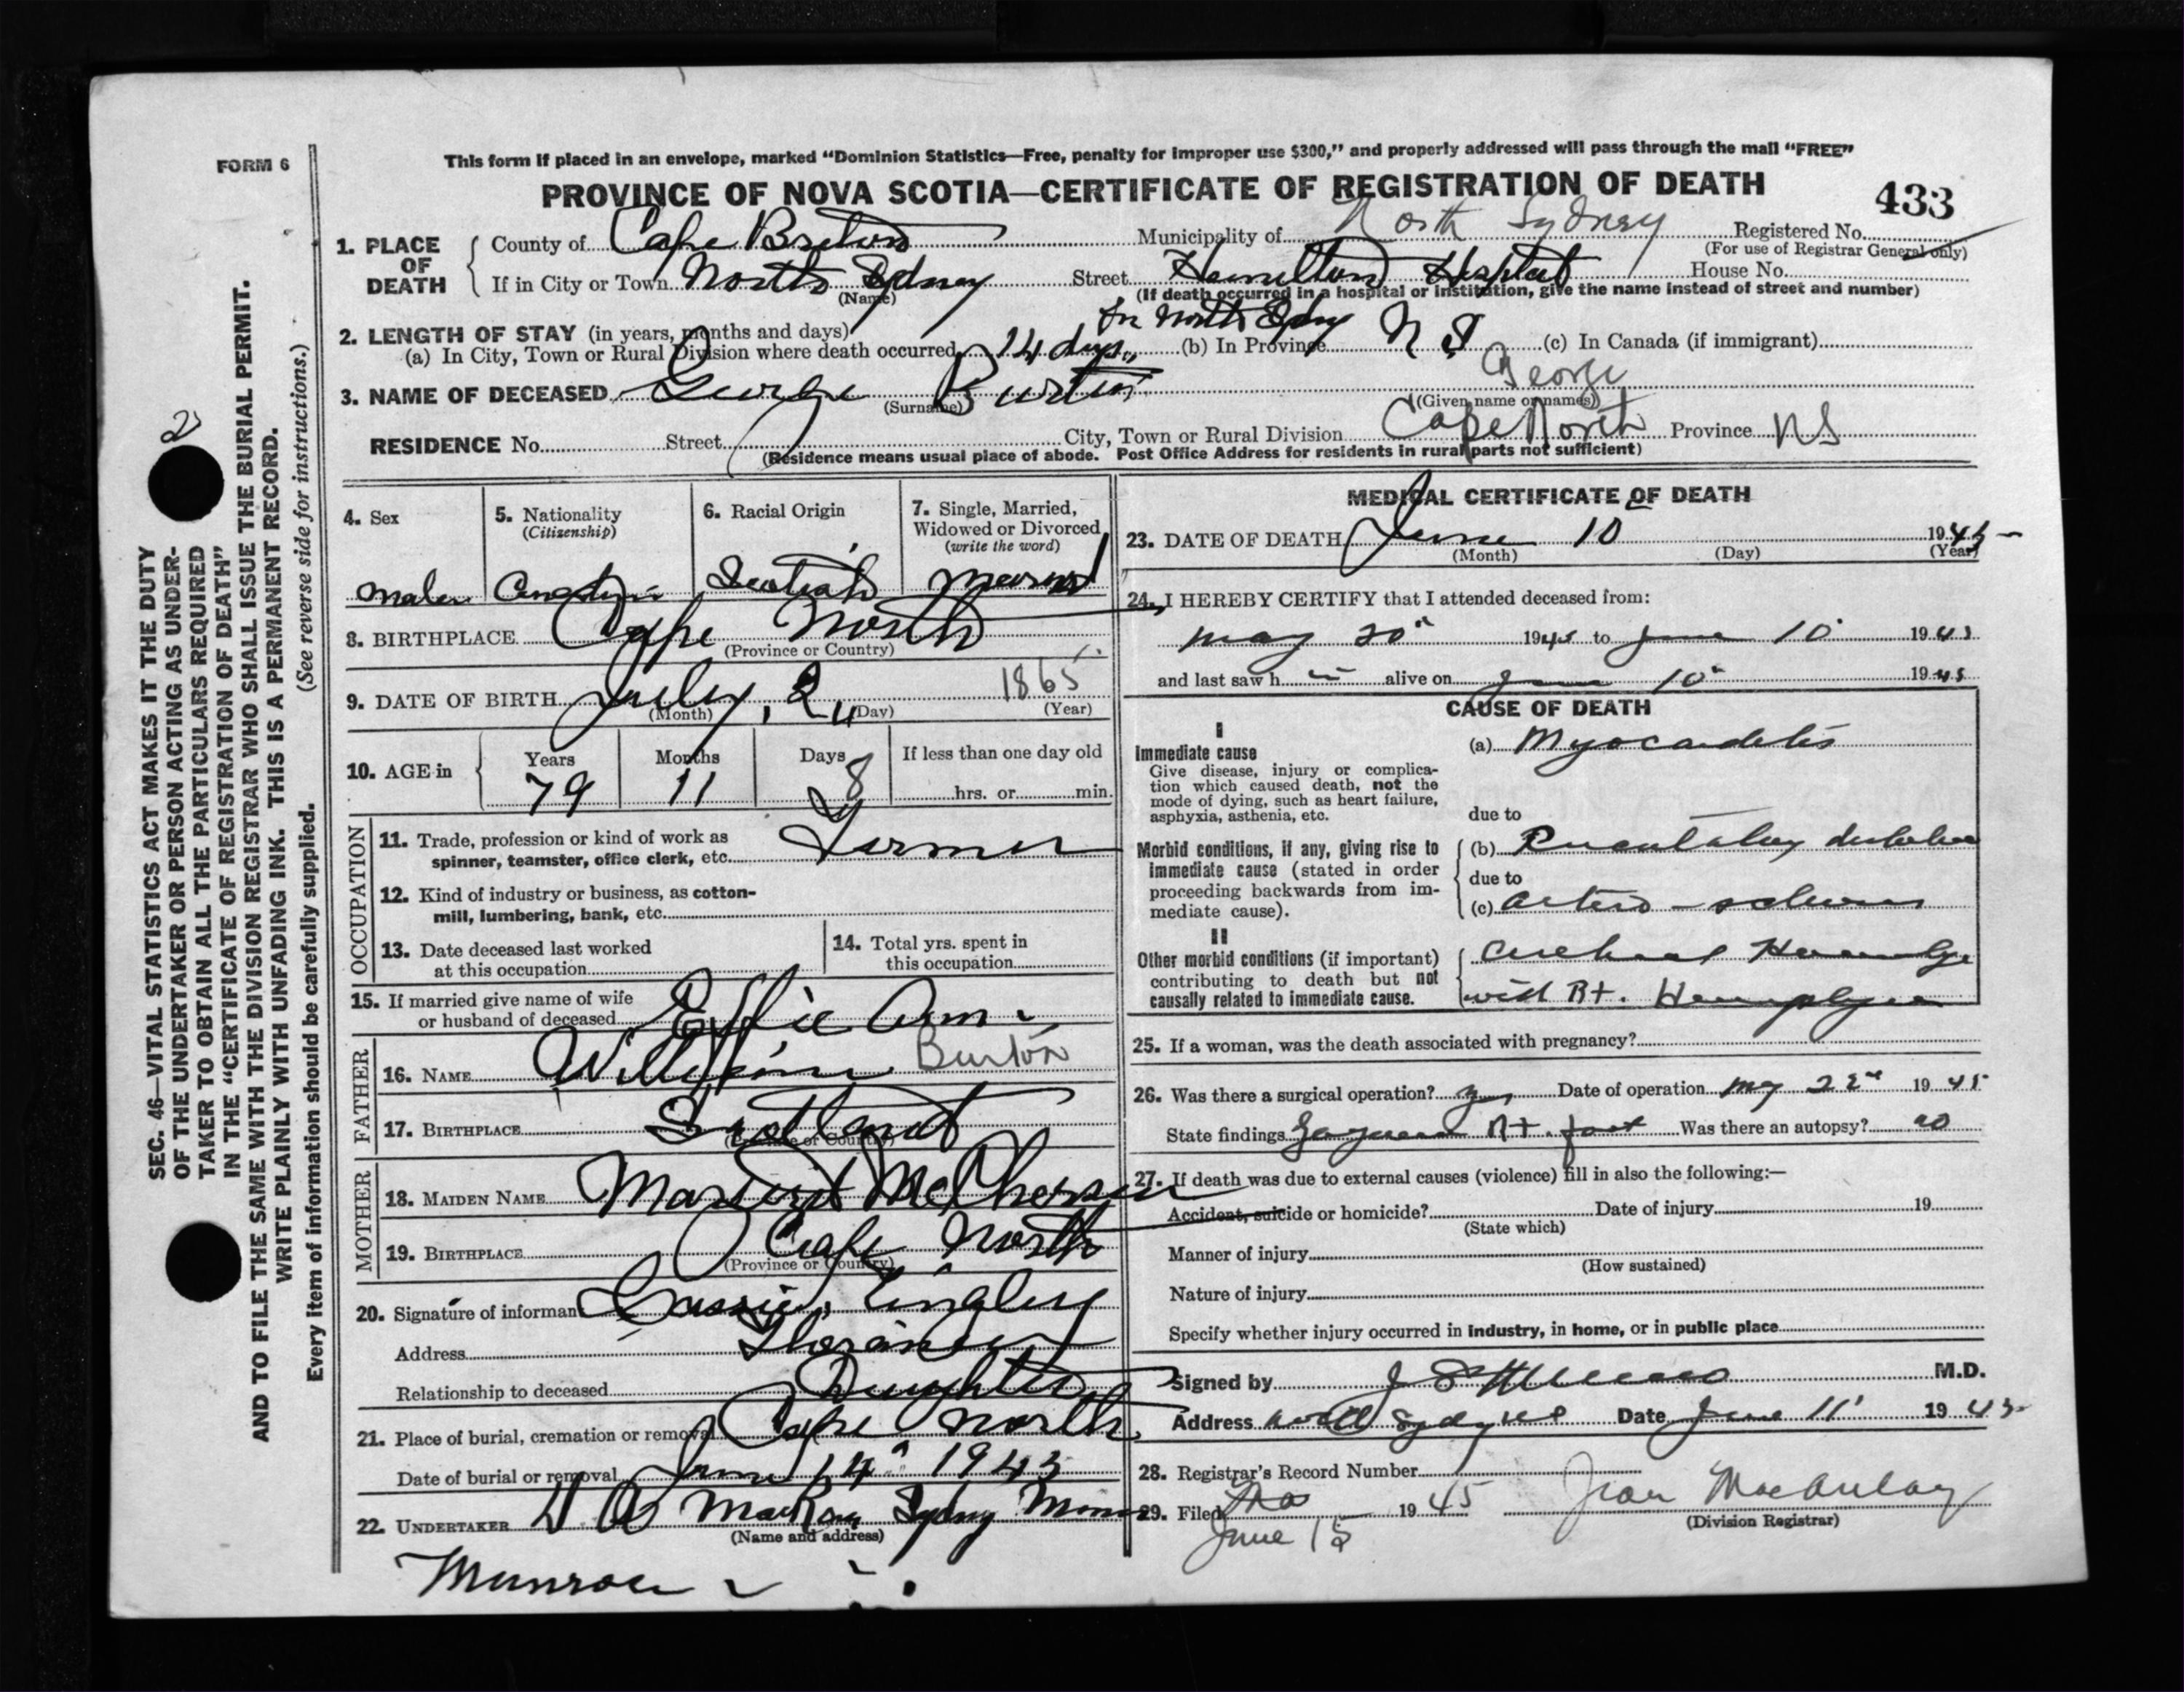 FORM 6
This form if placed in an envelope, marked “Dominion Statistics—Free, penalty for improper use $300,” and properly addressed will pass through the mail “FREE”
PROVINCE OF NOVA SCOTIA—CERTIFICATE OF REGISTRATION OF DEATH
433
1. PLACE OF DEATH
County of Cape Breton Municipality of North Sydney Registered No.
(For use of Registrar General only)
If in City or Town North Sydney Street Hamilton Hospital House No.
(Name)
(If death occurred in a hospital or institution, give the name instead of street and number)
2. LENGTH OF STAY (in years, months and days)
In North Sydney
(a) In City, Town or Rural Division where death occurred 14 days (b) In Province N S (c) In Canada (if immigrant)
3. NAME OF DECEASED George Burton George
(Surname) (Given name or names)
RESIDENCE No. Street City, Town or Rural Division Cape North Province NS
(Residence means usual place of abode. Post Office Address for residents in rural parts not sufficient)
4. Sex
Male
5. Nationality
(Citizenship)
6. Racial Origin
Scotish
7. Single, Married, Widowed or Divorced
(write the word)
Married
8. BIRTHPLACE Cape North
(Province or Country)
9. DATE OF BIRTH July, 2 1865
(Month) (Day) (Year)
10. AGE in
Years Months Days If less than one day old
79 11 8 hrs. or min.
OCCUPATION
11. Trade, profession or kind of work as
spinner, teamster, office clerk, etc. Farmer
12. Kind of industry or business, as cotton-
mill, lumbering, bank, etc.
13. Date deceased last worked
at this occupation
14. Total yrs. spent in
this occupation
15. If married give name of wife
or husband of deceased Effie Ann
FATHER
16. NAME William Burton
17. BIRTHPLACE Scotland
(Province or Country)
MOTHER
18. MAIDEN NAME Margret McPherson
19. BIRTHPLACE Cape North
(Province or Country)
20. Signature of informant Cassie
Address
Relationship to deceased Daughter
21. Place of burial, cremation or removal Cape North
Date of burial or removal June 14 1945
22. UNDERTAKER Sydney Mines
(Name and address)
Munroe
MEDICAL CERTIFICATE OF DEATH
23. DATE OF DEATH June 10 1945
(Month) (Day) (Year)
24. I HEREBY CERTIFY that I attended deceased from:
May 20 1945 to June 10 1945
and last saw h alive on June 10 1945
CAUSE OF DEATH
I
Immediate cause
Give disease, injury or complica-
tion which caused death, not the
mode of dying, such as heart failure,
asphyxia, asthenia, etc.
(a) Myocarditis
due to
Morbid conditions, if any, giving rise to
immediate cause (stated in order
proceeding backwards from im-
mediate cause).
(b)
due to
(c) arterio-sclerosis
II
Other morbid conditions (if important)
contributing to death but not
causally related to immediate cause.
Cerebral Hemorrhage
with Rt. Hemiplegia
25. If a woman, was the death associated with pregnancy?
26. Was there a surgical operation? yes Date of operation May 22nd 1945
State findings Gangrene Rt. foot Was there an autopsy? no
27. If death was due to external causes (violence) fill in also the following:—
Accident, suicide or homicide? Date of injury 19
(State which)
Manner of injury
(How sustained)
Nature of injury
Specify whether injury occurred in industry, in home, or in public place
Signed by M.D.
Address North Sydney Date June 11 1945
28. Registrar's Record Number
29. Filed June 15 1945 Jean MacAulay
(Division Registrar)
SEC. 46—VITAL STATISTICS ACT MAKES IT THE DUTY
OF THE UNDERTAKER OR PERSON ACTING AS UNDER-
TAKER TO OBTAIN ALL THE PARTICULARS REQUIRED
IN THE “CERTIFICATE OF REGISTRATION OF DEATH”
AND TO FILE THE SAME WITH THE DIVISION REGISTRAR WHO SHALL ISSUE THE BURIAL PERMIT.
WRITE PLAINLY WITH UNFADING INK. THIS IS A PERMANENT RECORD.
Every item of information should be carefully supplied. (See reverse side for instructions.)